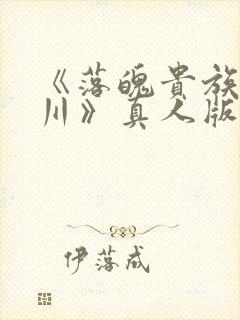 《落魄贵族
川》真人版
伊落成